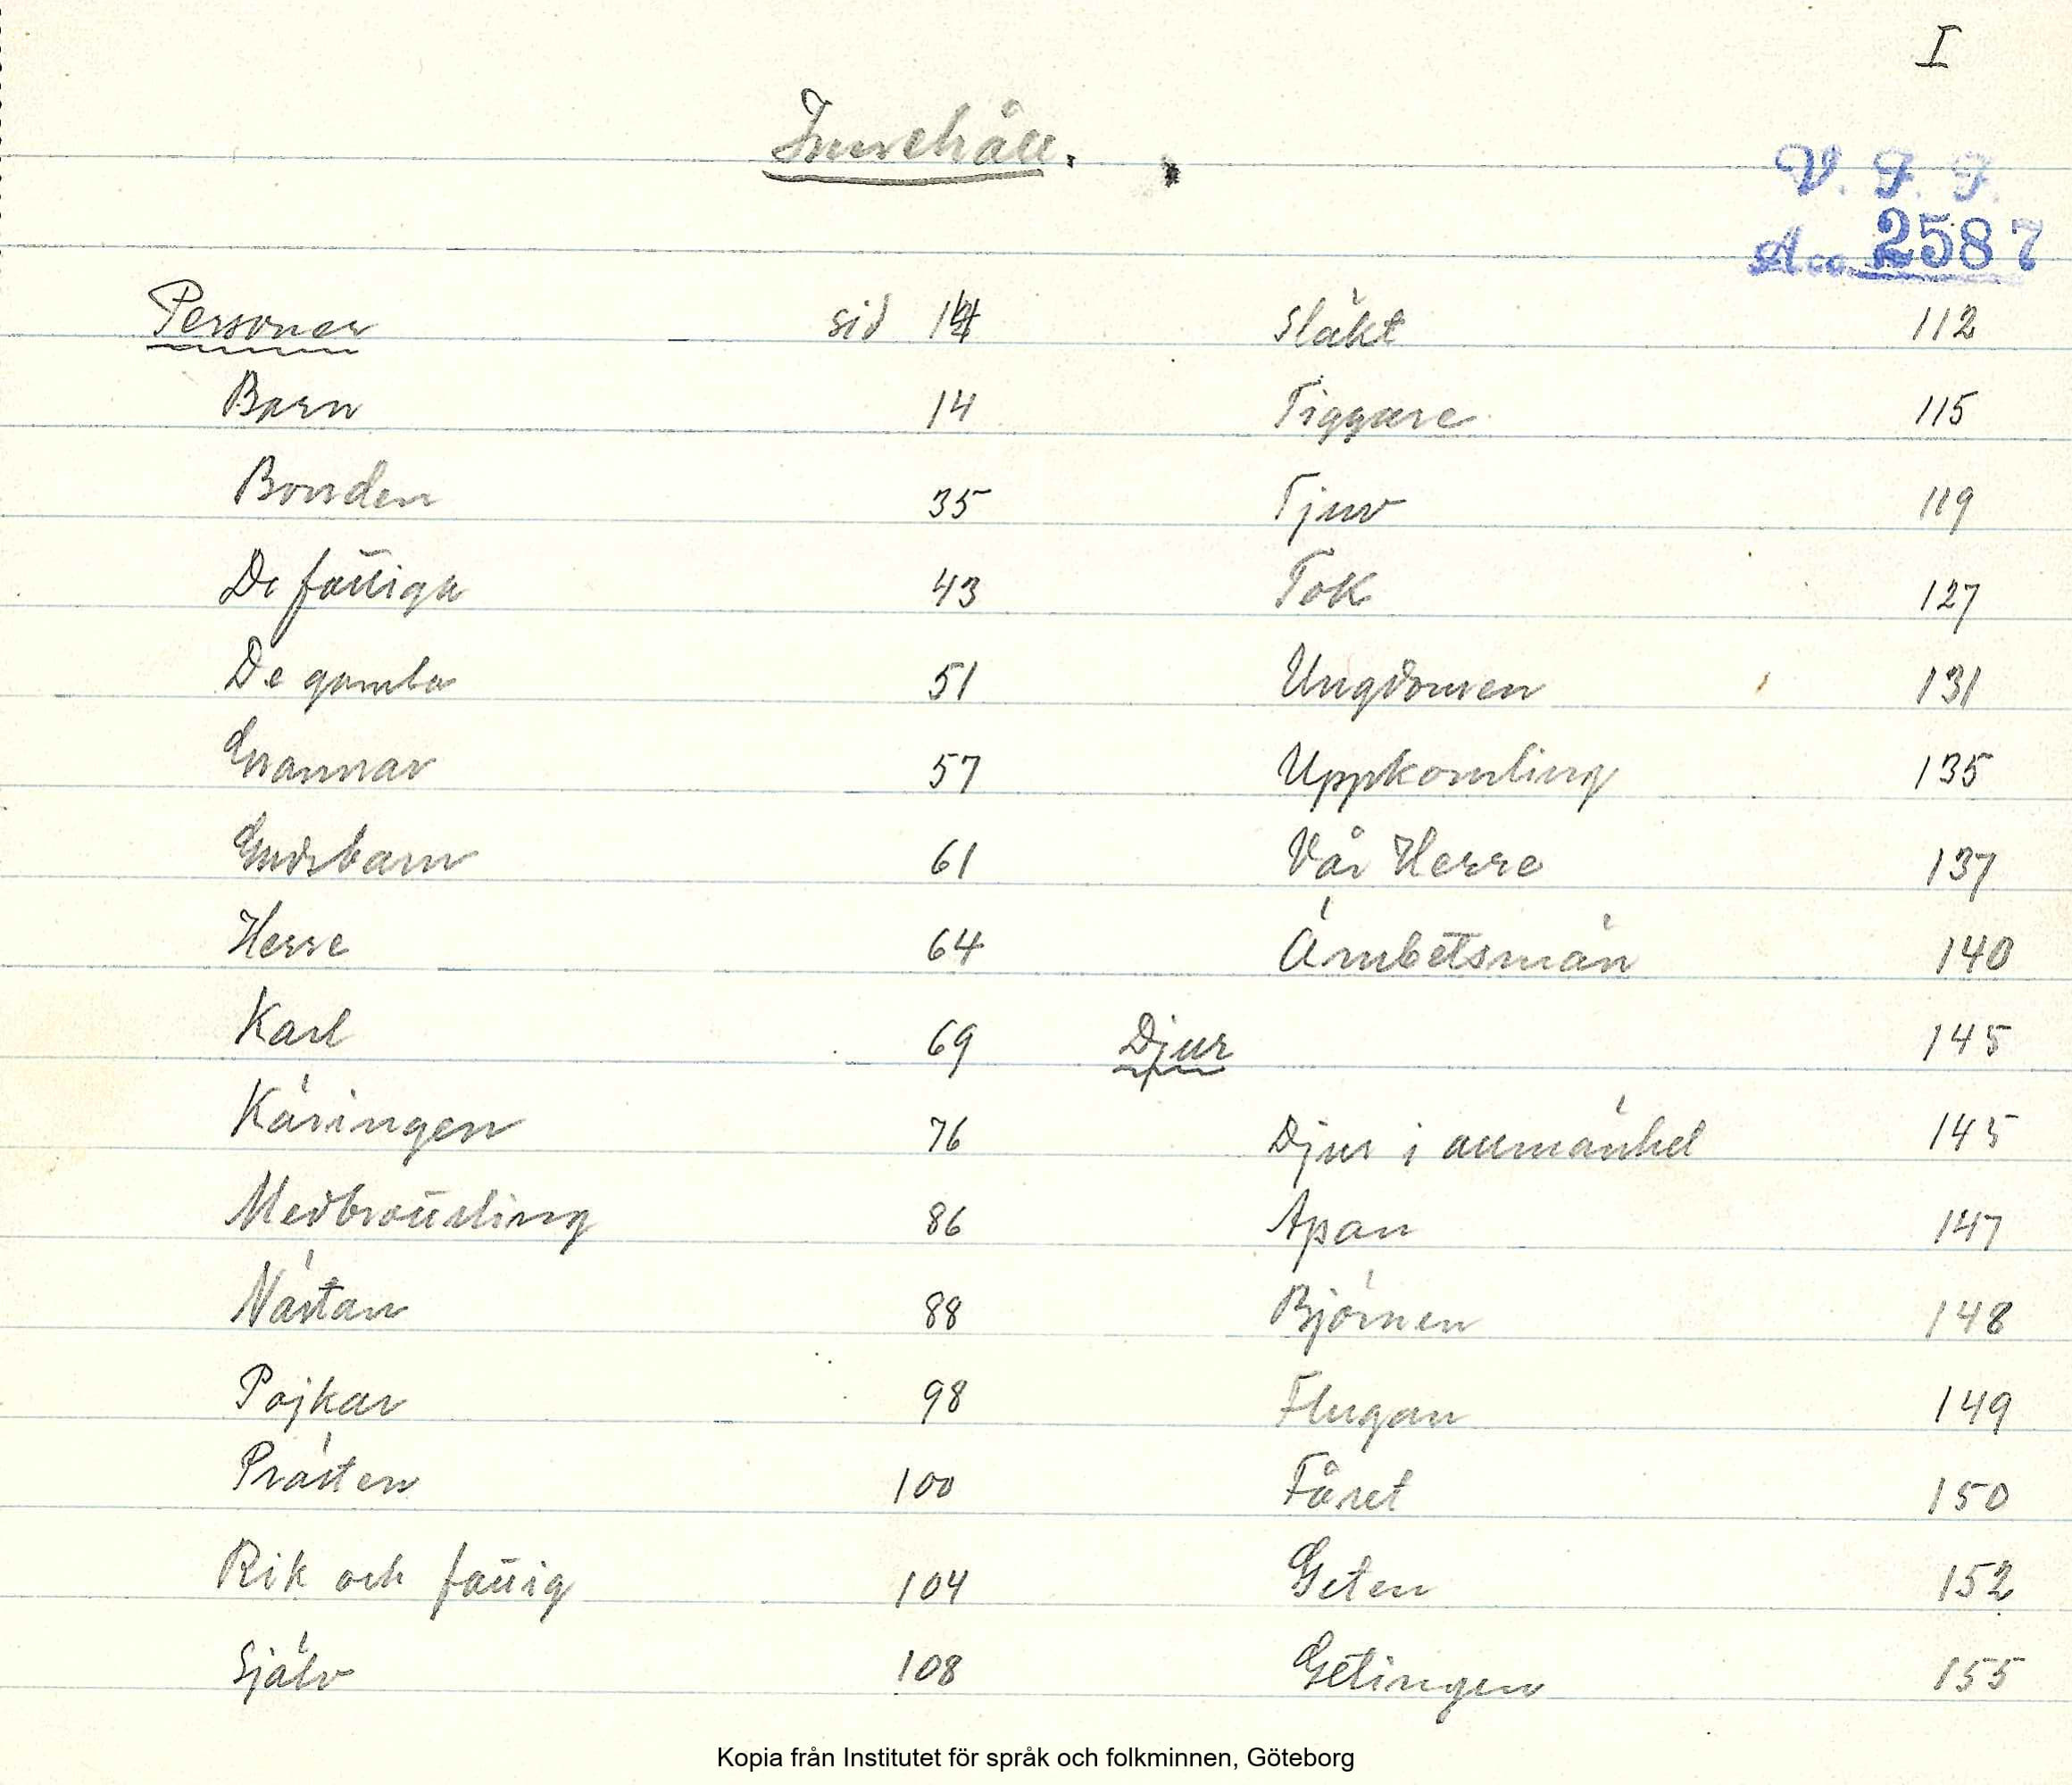 I
Innehåll.
V. F. F.
Acc. 2587
Personer sid 14
Barn 14
Bonden 35
De fattiga 43
De gamla 51
Grannar 57
Gudsbarn 61
Herre 64
Karl 69
Käringen 76
Medbrottsling 86
Nästan 88
Pojkar 98
Prästen 100
Rik och fattig 104
Själv 108
Släkt 112
Tiggare 115
Tjuv 119
Tok 127
Ungdomen 131
Uppkomling 135
Vår Herre 137
Ämbetsmän 140
Djur 145
Djur i allmänhet 145
Apan 147
Björnen 148
Flugan 149
Fåret 150
Geten 152
Getingen 155
Kopia från Institutet för språk och folkminnen, Göteborg